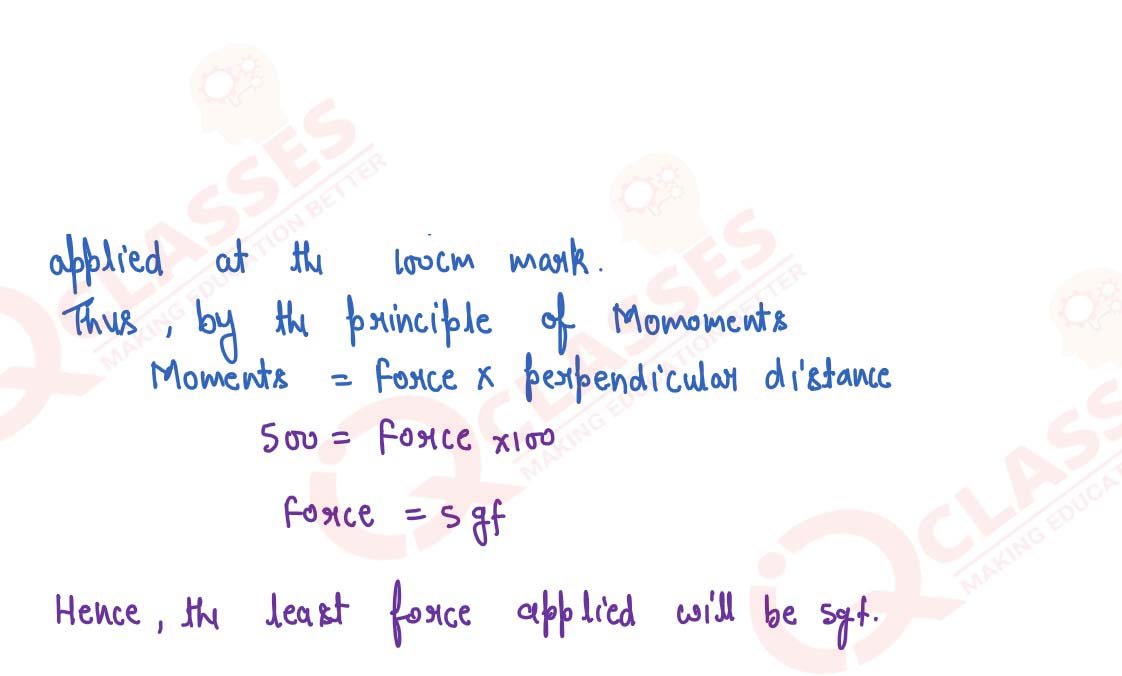 applied at the 100cm mark.
Thus, by the principle of Momoments
Moments = force x perpendicular distance
500 = force x100
force = 5 gf
Hence, the least force applied will be 5gf.
CLASSES
MAKING EDUCATION BETTER
CLASSES
MAKING EDUCATION BETTER
CLASSES
MAKING EDUCAT